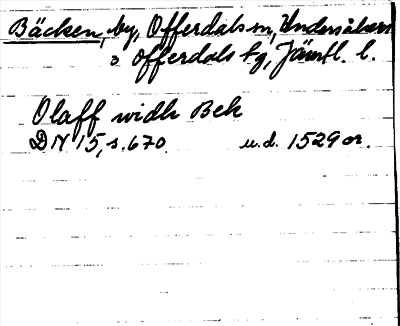 Bäcken, by, Offerdals sn, Undersåkers
o Offerdals tg, Jämtl. l.
Olaff widh Bek
DN 15, s. 670 u.d. 1529 or.